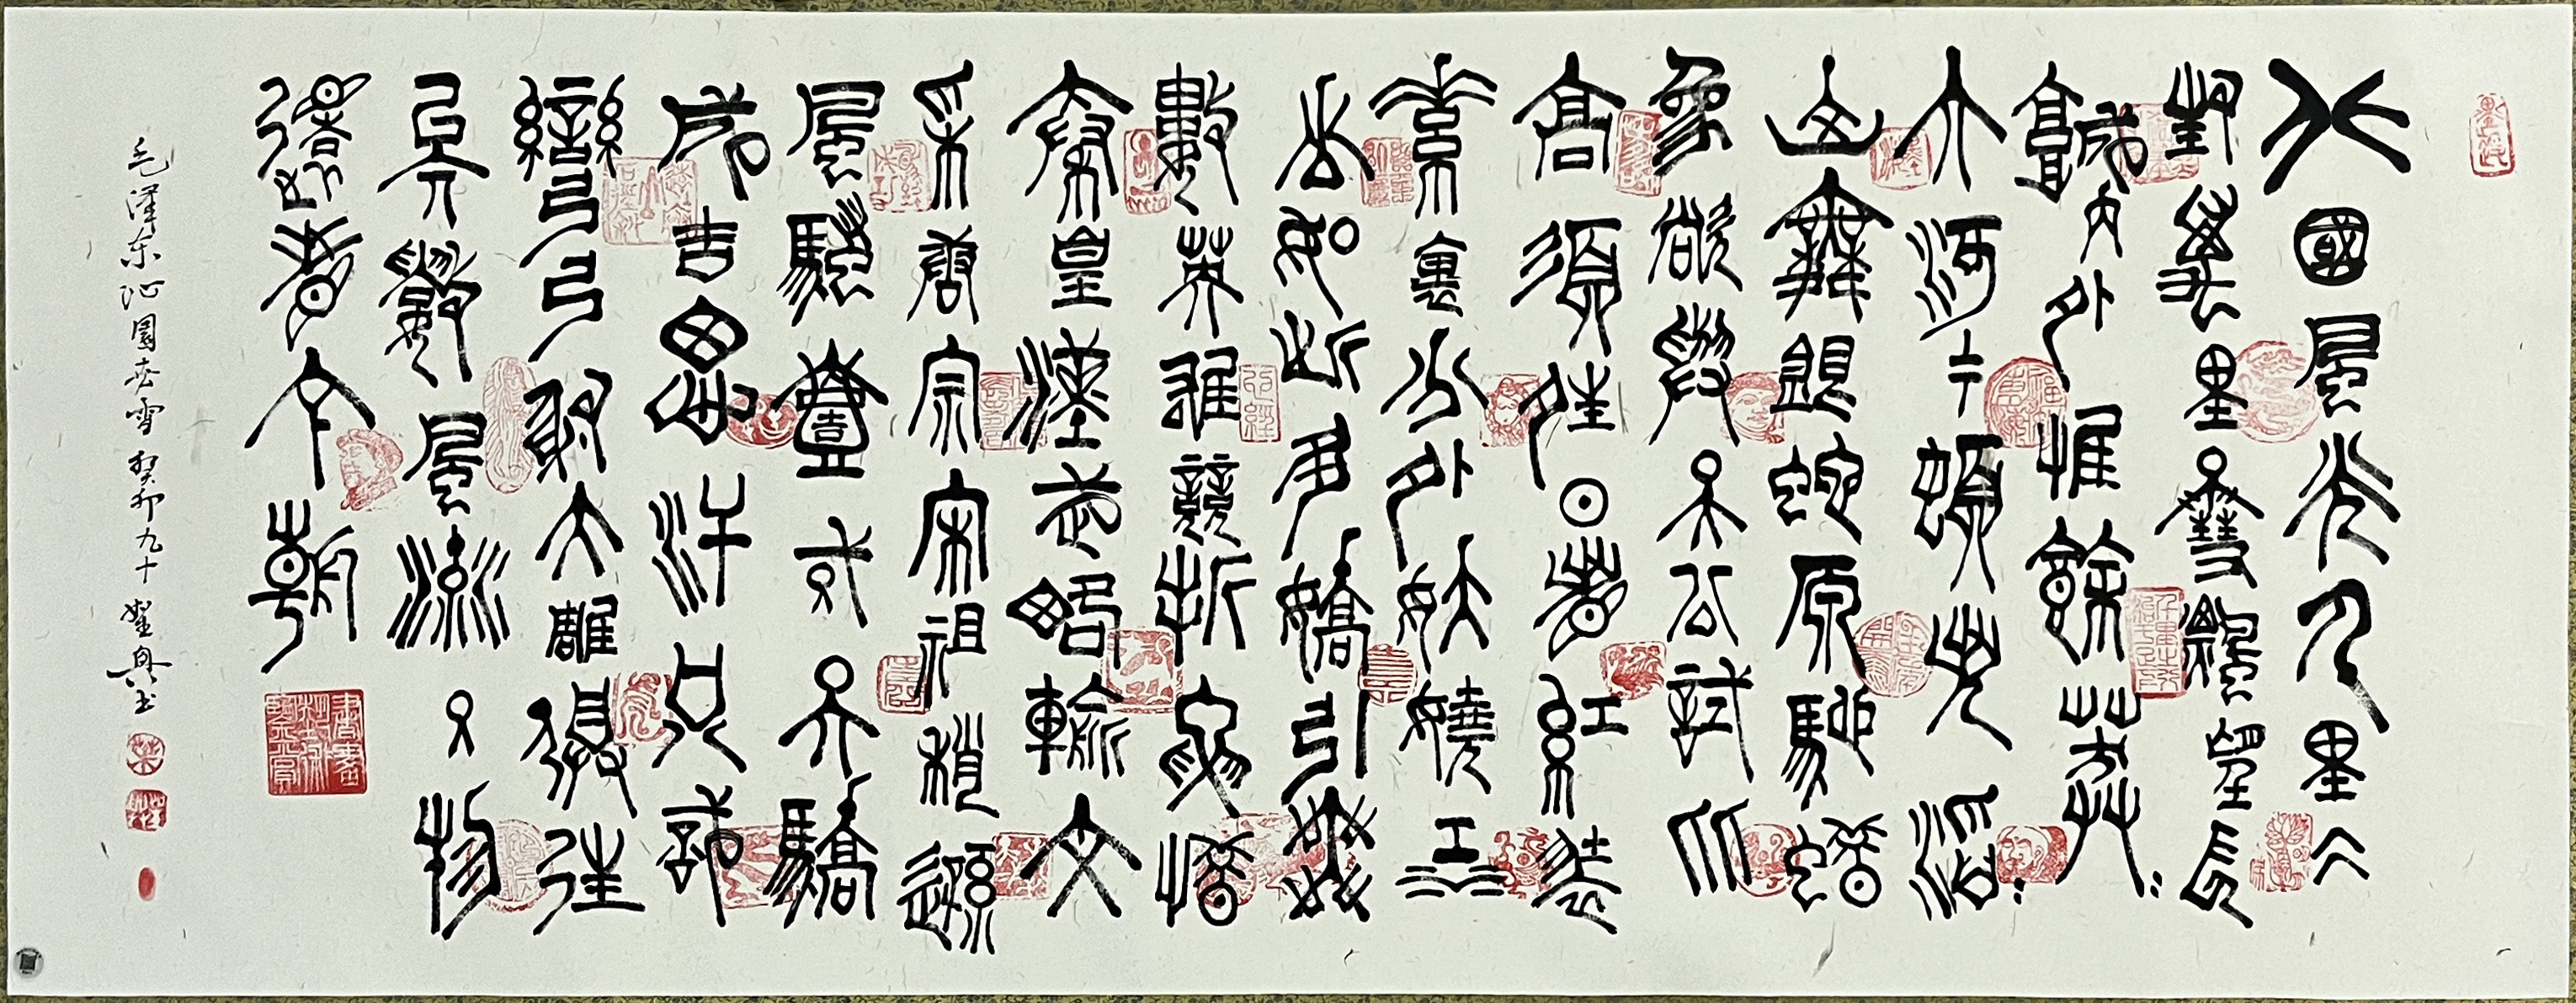 北國風光千里仌
封萬里雪飄望長
城内外惟餘莽〻
大河上下頓失滔〻
山舞銀蛇原馳蠟
象欲與天公試比
高須晴日看紅裝
素裹分外妖嬈江
山如此多嬌引無
數英雄競折腰惜
秦皇漢武略輸文
采唐宗宋祖稍遜
風騷一代天驕
成吉思汗只識
彎弓射大雕俱往
矣數風流人物
還看今朝
毛泽东沁園春雪 癸卯九十